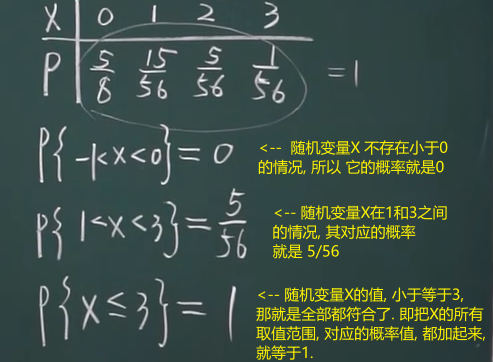 X 0 1 2 3
P 5/8 15/56 5/56 1/56 =1
P{-1<X<0}=0
<-- 随机变量X 不存在小于0
的情况, 所以 它的概率就是0
P{1<X<3}=5/56
<-- 随机变量X在1和3之间
的情况, 其对应的概率
就是 5/56
P{X≤3}=1
<-- 随机变量X的值, 小于等于3,
那就是全部都符合了. 即把X的所有
取值范围, 对应的概率值, 都加起来,
就等于1.